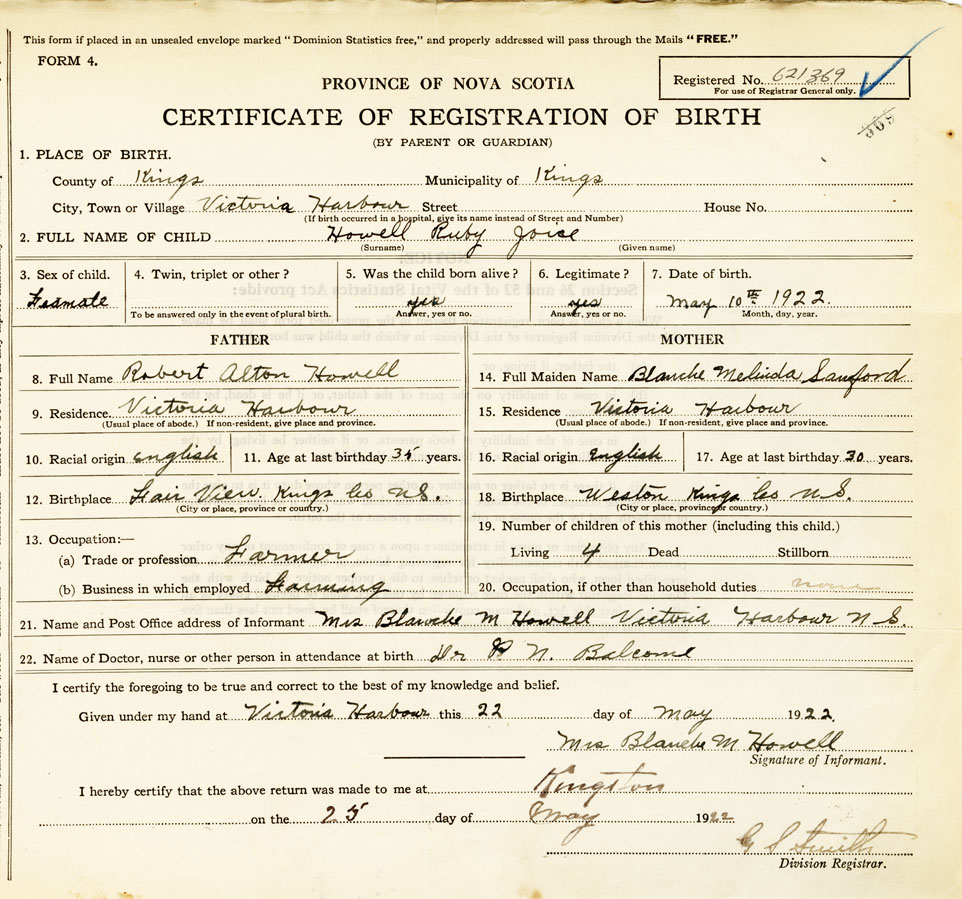 This form if placed in an unsealed envelope marked "Dominion Statistics free," and properly addressed will pass through the Mails "FREE."
FORM 4.
Registered No. 621369
For use of Registrar General only.
PROVINCE OF NOVA SCOTIA
CERTIFICATE OF REGISTRATION OF BIRTH
368
(BY PARENT OR GUARDIAN)
1. PLACE OF BIRTH.
County of Kings Municipality of Kings
City, Town or Village Victoria Harbour Street House No.
(If birth occurred in a hospital, give its name instead of Street and Number)
2. FULL NAME OF CHILD Howell Ruby Joice
(Surname) (Given name)
3. Sex of child. 4. Twin, triplet or other? 5. Was the child born alive? 6. Legitimate? 7. Date of birth.
Feamale yes yes May 10th 1922.
To be answered only in the event of plural birth. Answer, yes or no. Answer, yes or no. Month, day, year.
FATHER MOTHER
8. Full Name Robert Alton Howell 14. Full Maiden Name Blanche Melinda Sanford
9. Residence. Victoria Harbour 15. Residence Victoria Harbour
(Usual place of abode.) If non-resident, give place and province. (Usual place of abode.) If non-resident, give place and province.
10. Racial origin English 11. Age at last birthday 35 years. 16. Racial origin English 17. Age at last birthday 30 years.
12. Birthplace Fair View. Kings Co N.S. 18. Birthplace Weston Kings Co N.S.
(City or place, province or country.) (City or place, province or country.)
13. Occupation:— 19. Number of children of this mother (including this child.)
(a) Trade or profession Farmer Living 4 Dead Stillborn
(b) Business in which employed Farming 20. Occupation, if other than household duties none
21. Name and Post Office address of Informant Mrs Blanche M Howell Victoria Harbour N S.
22. Name of Doctor, nurse or other person in attendance at birth Dr P N. Balcome
I certify the foregoing to be true and correct to the best of my knowledge and belief.
Given under my hand at Victoria Harbour this 22 day of May 1922.
Mrs Blanche M Howell
Signature of Informant.
I hereby certify that the above return was made to me at Kingston
on the 25 day of May 1922
G S Smith
Division Registrar.